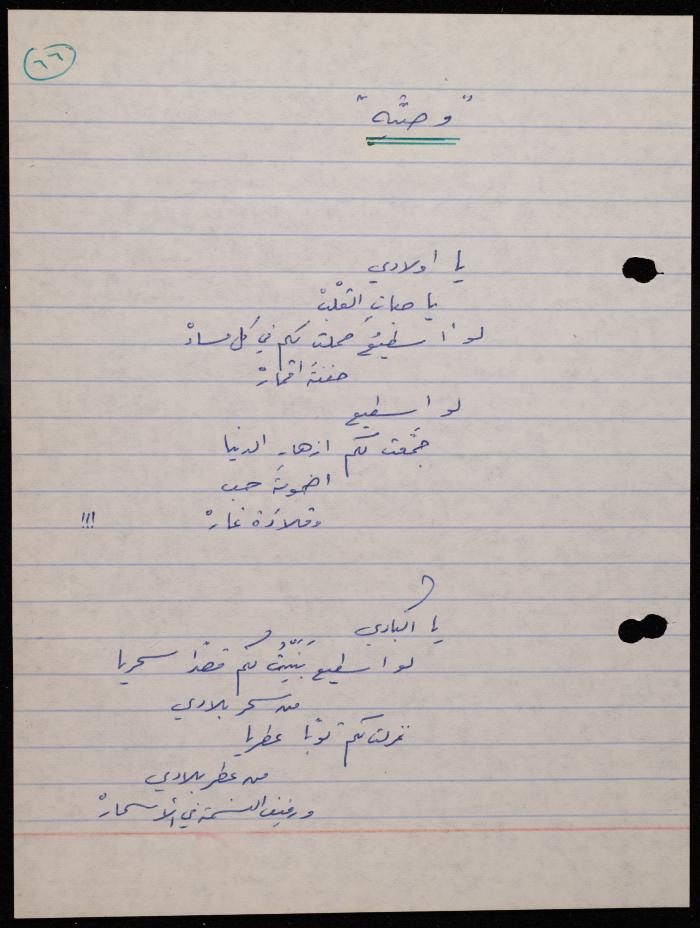 ٦٦
" وصيّة "
يا اولادي
يا حباتِ القلْبْ
لو أسطيعُ حملت لكم في كل مساءْ
حفنةَ اقمارْ
لو اسطيع
جمَّعت لكم ازهار الدنيا
اضمومةَ حب
وقلادَة غارْ !!!
يا اكبادي
لو اسطيع بَنَيْتُ لكم قصرًا سحريا
من سحر بلادي
غزلت لكم ثوبًا عطريا
من عطر بلادي
ورفيف النسمة في الأسحارْ